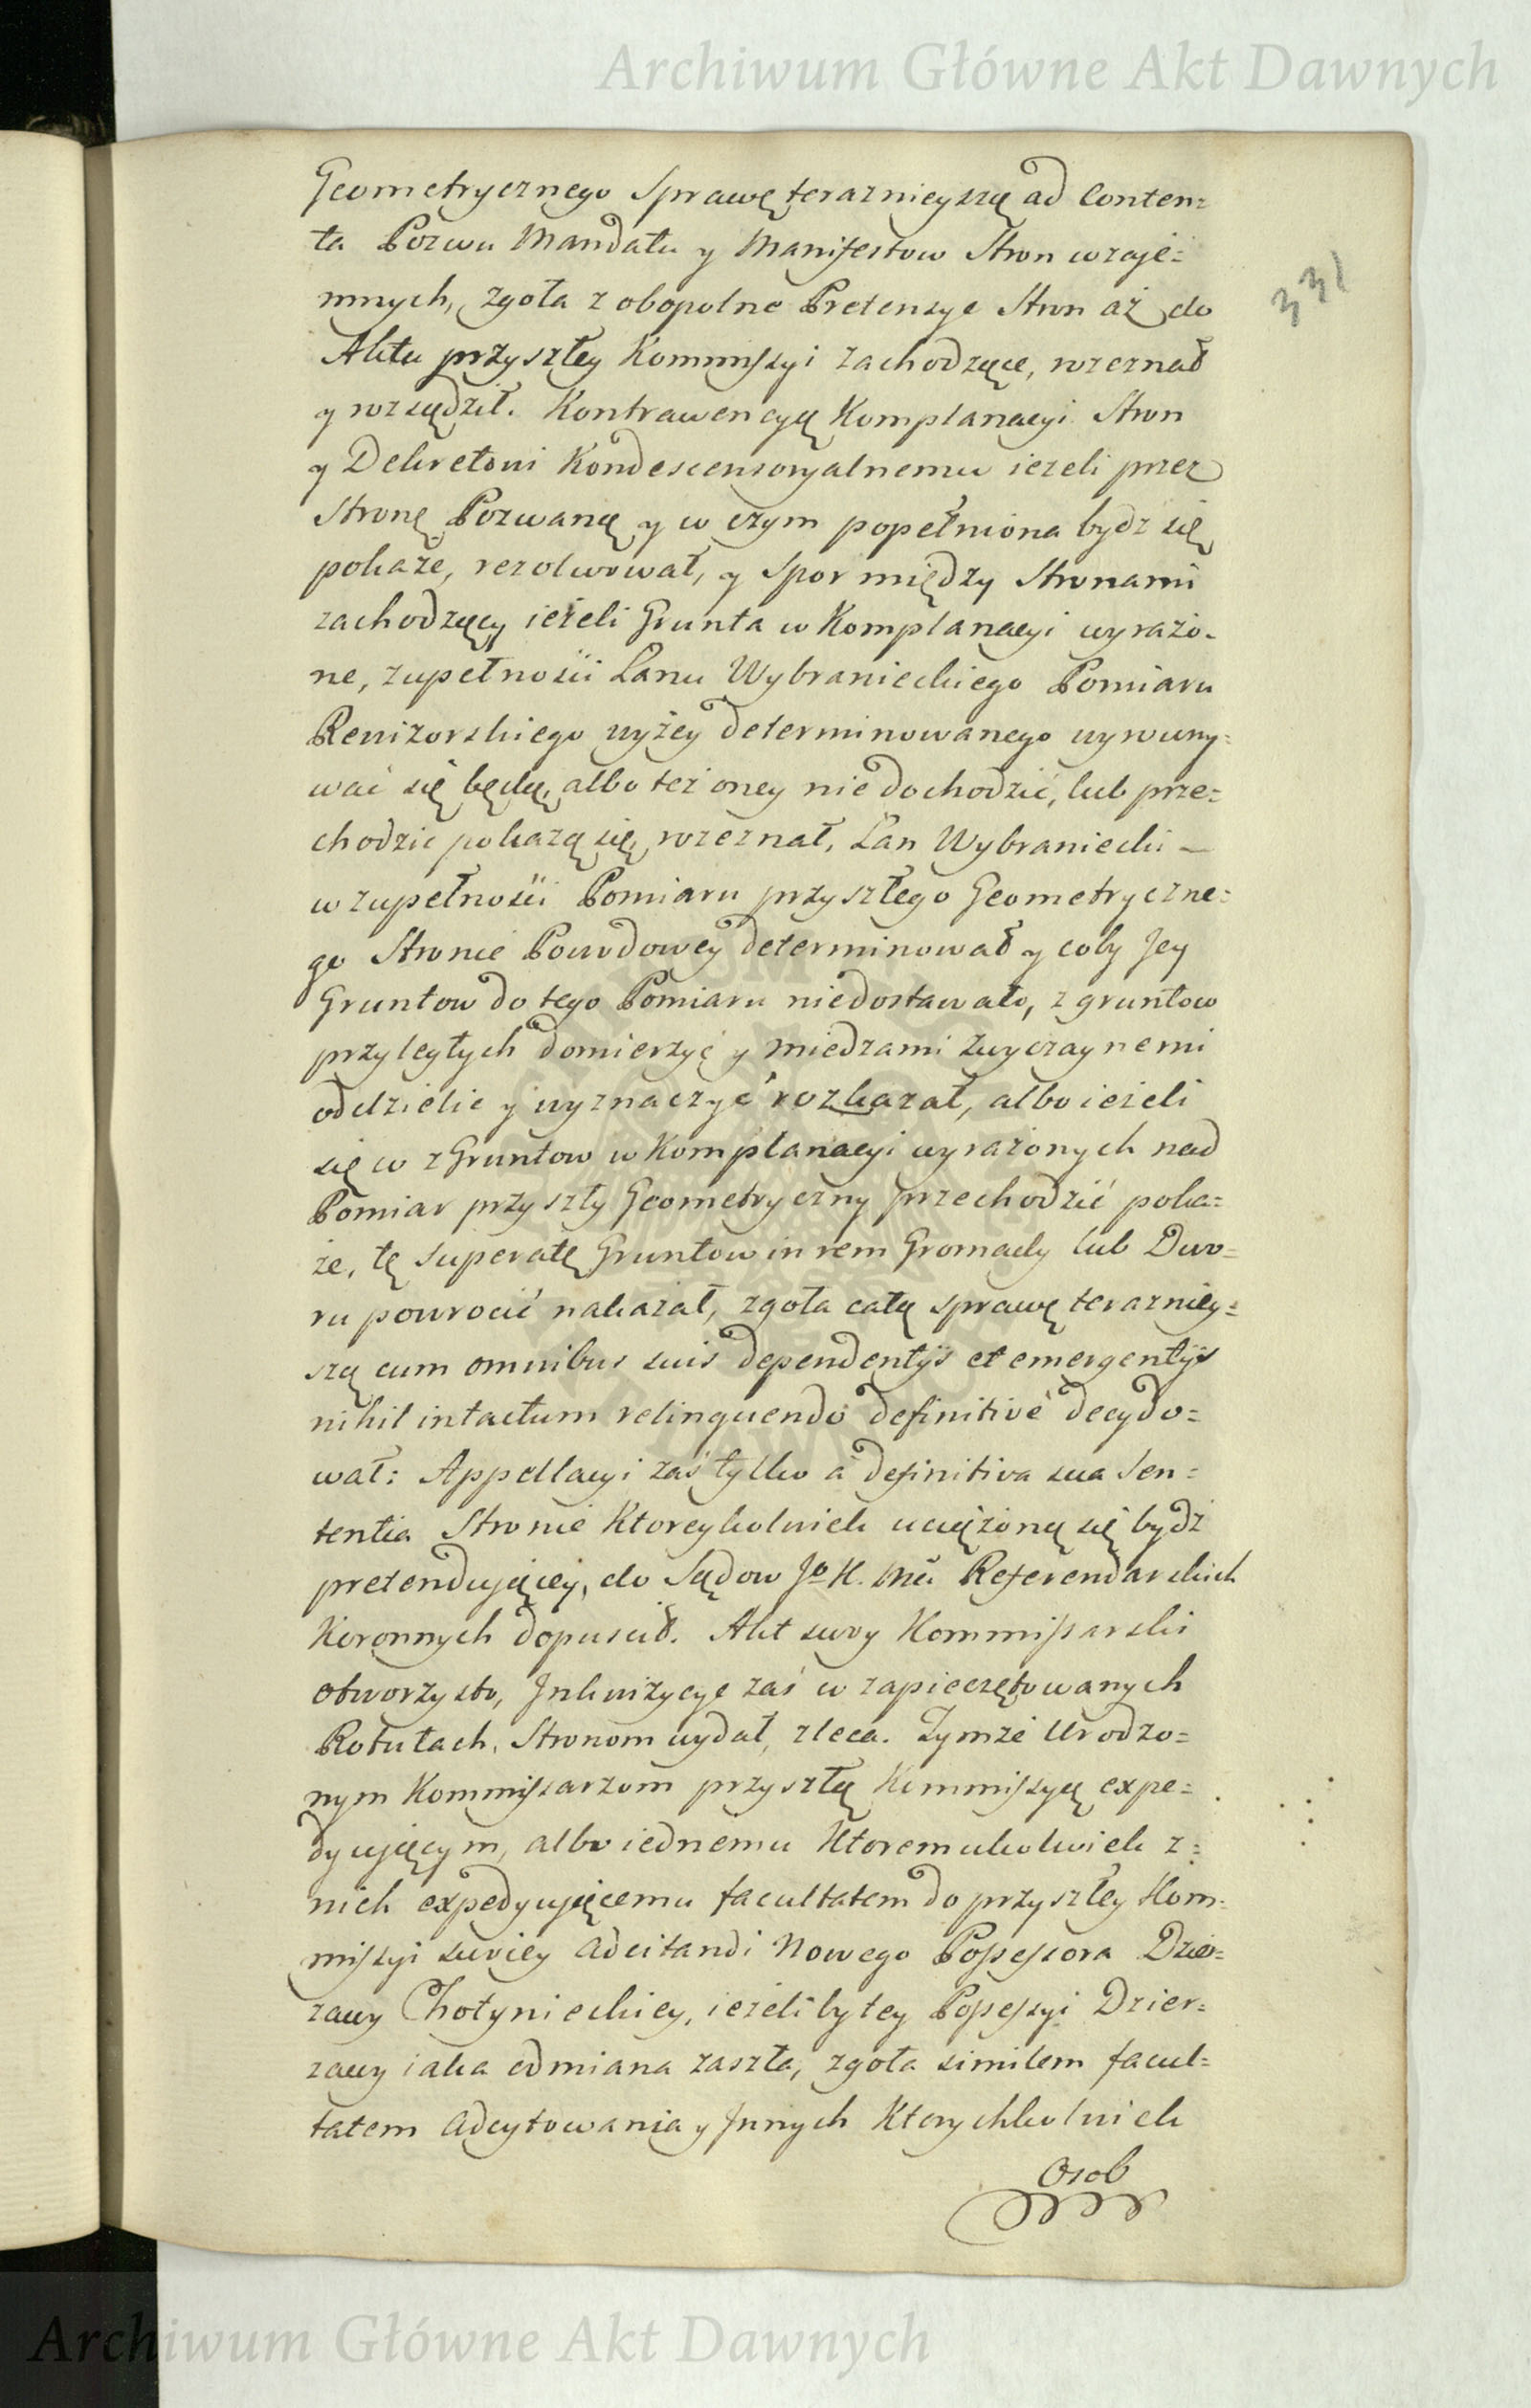 Archiwum Główne Akt Dawnych
331
Geometrycznego Sprawę teraznieyszą ad Conten=
ta Pozwu Mandatu y Manifestow Stron wzaje=
mnych, zgoła z obopolne Pretensye Stron aż do
Aktu przyszłey Kommissyi zachodzące, rozeznał
y rozsądził. Kontrawencyą Komplanacyi Stron
y Dekretowi Kondescensoryalnemu iezeli przez
Stronę Pozwaną y w czym popełniona bydz się
pokaże, rezolwował, y Spor między Stronami
zachodzący ieżeli Grunta w Komplanacyi wyrażo-
ne, zupełności Łanu Wybranieckiego Pomiaru
Rewizorskiego wyżey determinowanego wyrowny=
wać się będą, albo też oney nie dochodzić, lub prze=
chodzic pokażą się, rozeznał, Łan Wybraniecki —
w zupełności Pomiaru przyszłego Geometryczne=
go Stronie Powodowey determinował y coby Jey
Gruntow do tego Pomiaru niedostawało, z gruntow
przyległych domierzyć y miedzami zwyczaynemi
oddzielic y wyznaczyć rozkazał, albo ieżeli
się co z Gruntow w Komplanacyi wyrażonych nad
Pomiar przyszły Geometryczny przechodzić poka=
że, tę superatę Gruntow in rem Gromady lub Dwo=
ru powrocić nakazał, zgoła całą sprawę teraznięy=
szą cum omnibus suis dependentijs et emergentijs
nihil intactum relinquendo definitivè decydo=
wał: Appellacyi zaś tylko à definitiva sua Sen=
tentia Stronie Ktoreykolwiek uciążoną się bydź
pretendującey, do Sądow Jo K. Mci Referendarskich
Koronnych dopuscił. Akt swoy Kommissarski
otworzysto, Inkwizycye zaś w zapieczętowanych
Rotułach, Stronom wydał, zleca. Tymże Urodzo=
nym Kommissarzom przyszłą Kommissyą expe=
dyującym, albo iednemu Ktoremukolwiek z=
nich expedyującemu facultatem do przyszłey Kom=
missyi swoiey adcitandi Nowego Possessora Dzier=
zawy Chotynieckiey, ieżeliby tey Possessyi Dzier=
zawy iaka odmiana zaszła, zgoła similem facul=
tatem adcytowania y Innych Ktorychkolwiek
Osob
Archiwum Główne Akt Dawnych